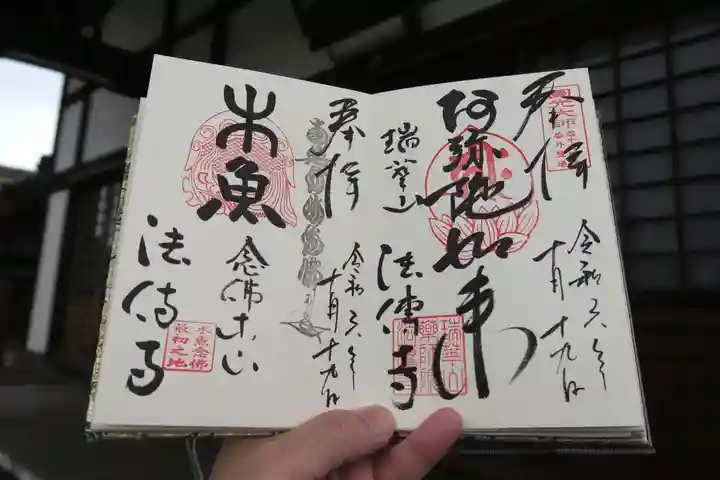 奉拝
令和六年
十月十九日
阿弥陀如来
瑞聖山
法傳寺
奉拝
令和六年
十月十九日
南無阿弥陀佛
木魚
念佛
法傳寺
木魚念佛
最初之地